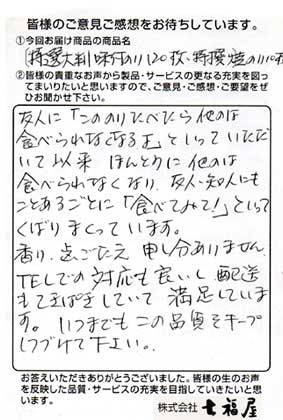 皆様のご意見ご感想をお待ちしています。
①今回お届け商品の商品名
(特選大判味付のり120枚、特撰焼のり10枚
②皆様の貴重なお声から製品・サービスの更なる充実を図っ
てまいりたいと思いますので、ご意見・ご感想・ご要望をぜ
ひお聞かせ下さい。
友人に「こののりたべたら他のは
食べられなくなるよ」といっていただ
いて以来 ほんとうに他のは
食べられなくなり、友人・知人にも
ことあるごとに「食べてみて!」といって
くばりまくっています。
香り、歯ごたえ 申し分ありません。
TELでの対応も良いし 配送
もてきぱきしていて 満足していま
す。いつまでもこの品質をキープ
しつづけて下さい。
お答えいただきありがとうございました。皆様の生のお声
を反映した品質・サービスの充実を目指していきたいと思
います。
株式会社 七福屋